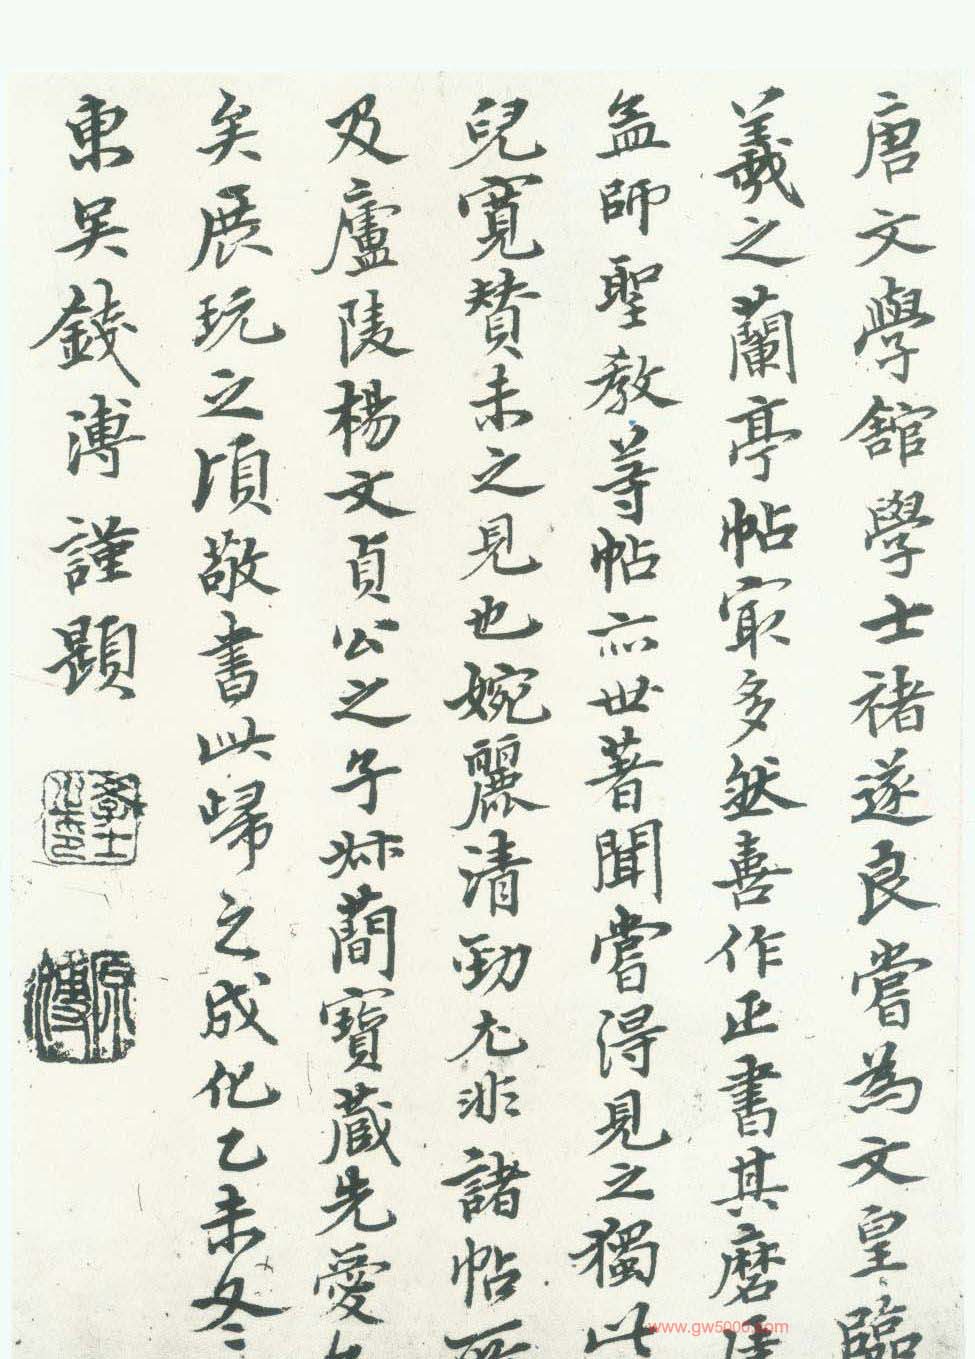 唐文學館學士褚遂良嘗為文皇臨
羲之蘭亭帖冣多然善作正書其磨
孟師聖教等帖亦世著聞嘗得見之獨此
兒寬贊未之見也婉麗清勁尤非諸帖所
及廬陵楊文貞公之子叔蕳寶藏先愛
矣展玩之頃敬書此歸之成化乙未冬
東吳錢溥謹題
學士
原溥
www.gw5000.com